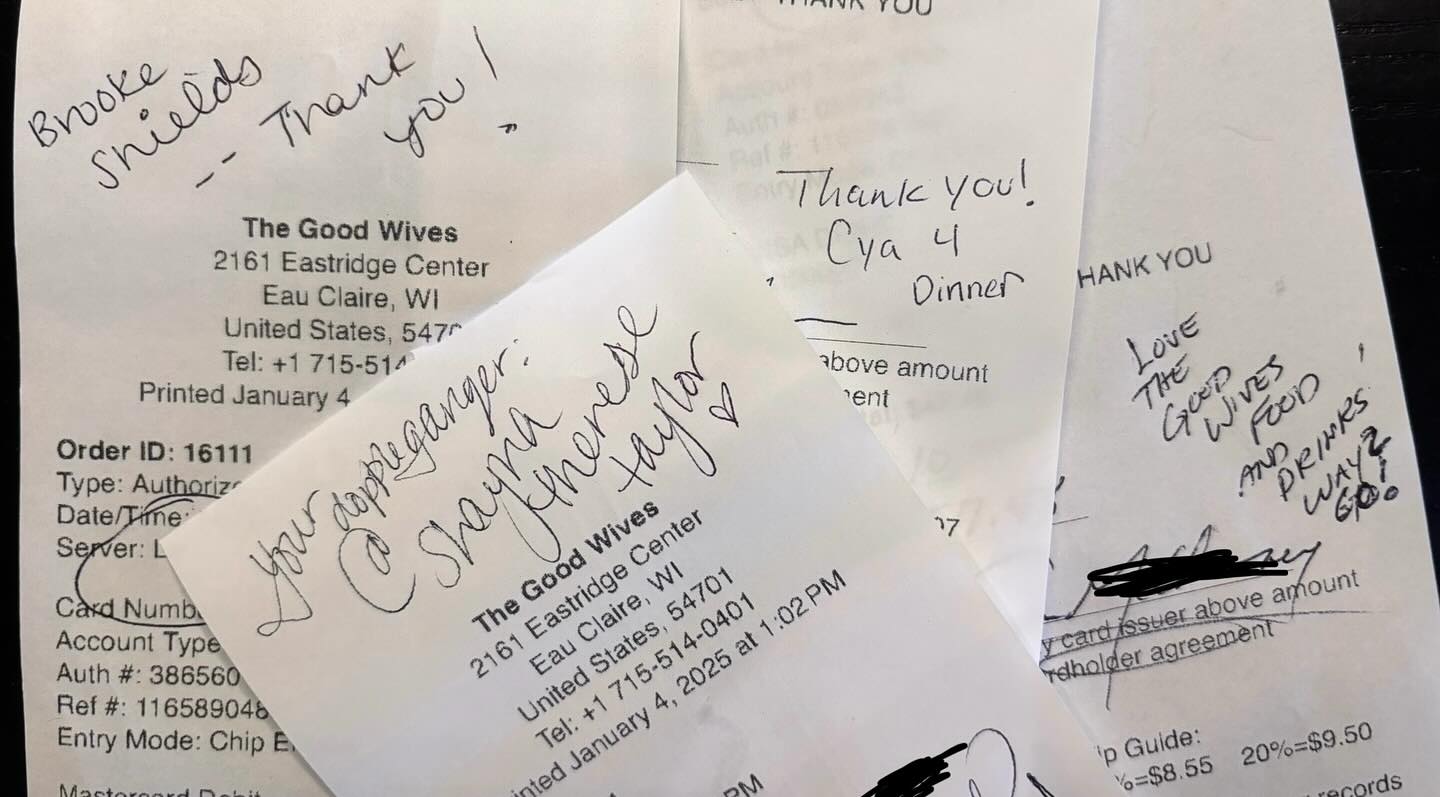 Brooke
Shields
-- Thank
you!
The Good Wives
2161 Eastridge Center
Eau Claire, WI
United States, 547
Tel: +1 715-514
Printed January 4
Order ID: 16111
Type: Authoriz
Date/Time:
Server: L
Card Numb
Account Type
Auth #: 386560
Ref #: 116589048
Entry Mode: Chip E
Mastercard Debit
Your doppleganger:
@ Shayna
therese
taylor
The Good Wives
2161 Eastridge Center
Eau Claire, WI
United States, 54701
Tel: +1 715-514-0401
inted January 4, 2025 at 1:02 PM
PM
THANK YOU
Thank you!
Cya 4
Dinner
above amount
ent
HANK YOU
LOVE
THE
GOOD
WIVES
FOOD
AND
DRINKS
WAY 2
GO!
y card issuer above amount
rdholder agreement
ip Guide:
%=$8.55 20%=$9.50
records